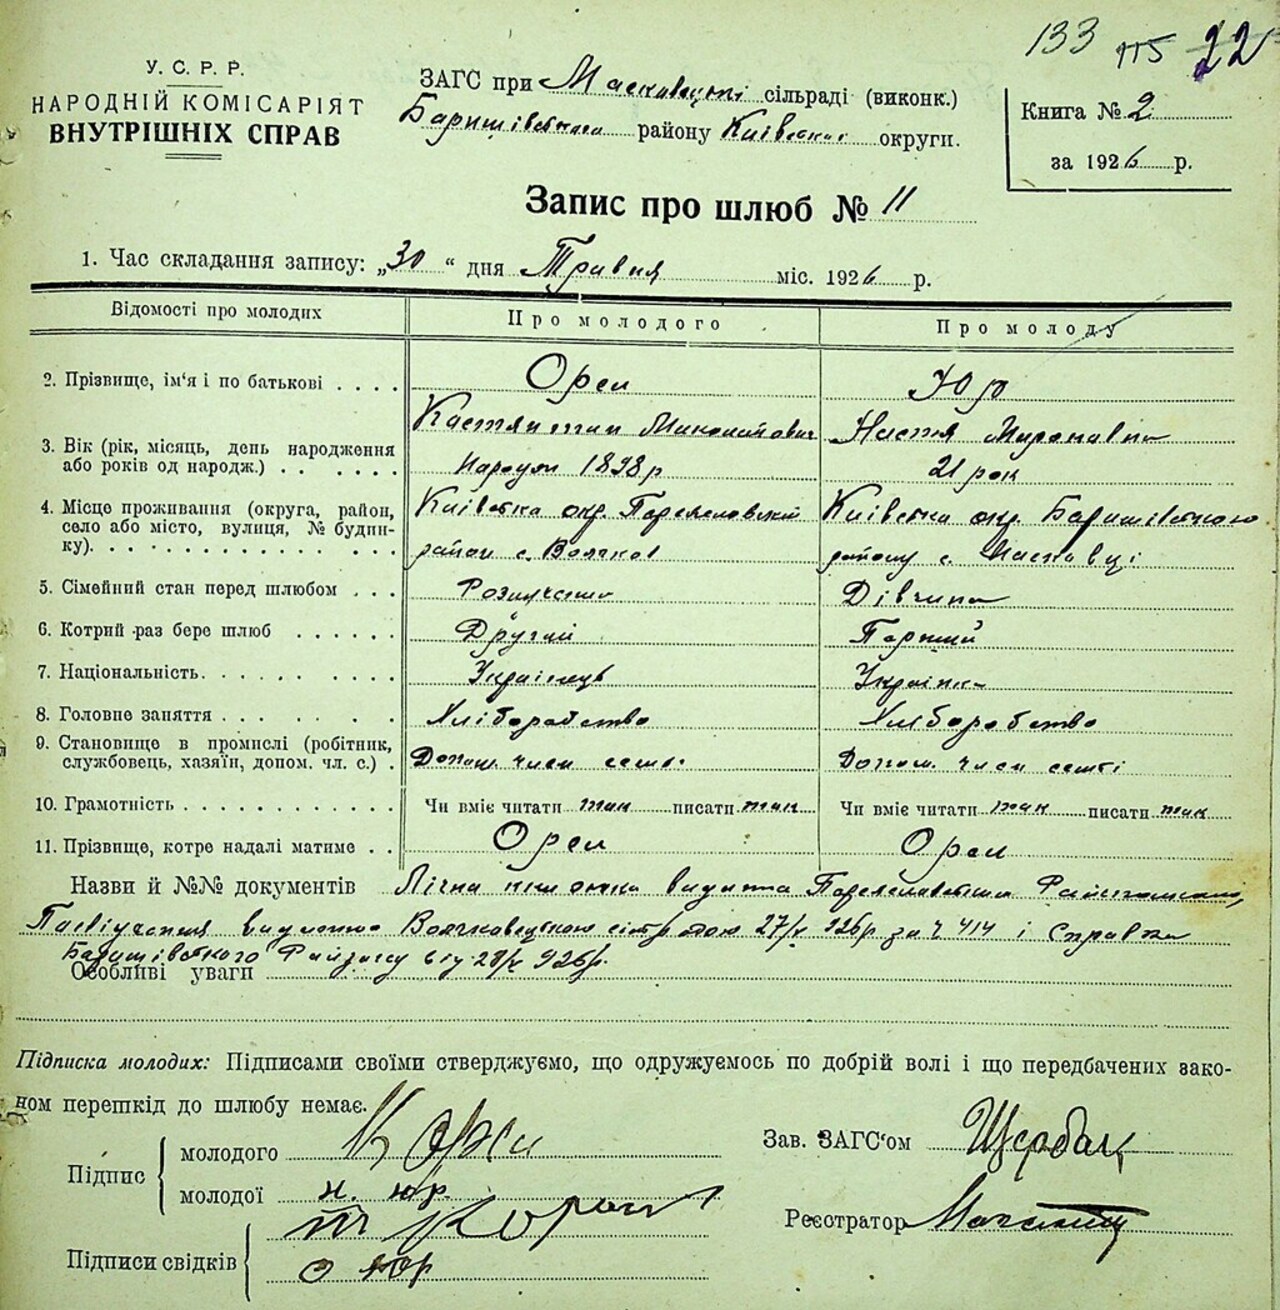 133 115 22
У. С. Р. Р.
НАРОДНІЙ КОМІСАРІЯТ
ВНУТРІШНІХ СПРАВ
ЗАГС при Масковецькі сільраді (виконк.)
Баришівського району Київської округи.
Книга № 2
за 1926 р.
Запис про шлюб № 11
1. Час складання запису: „30“ дня Травня міс. 1926 р.
Відомості про молодих Про молодого Про молоду
2. Прізвище, ім'я і по батькові . . . . Орел Юр
Костянтин Миколайович Настя Миронівна
3. Вік (рік, місяць, день народження
або років од народж.) . . . . . . Народж 1898 р 21 рок
4. Місце проживання (округа, район,
село або місто, вулиця, № будин-
ку). . . . . . . . . . . . . .
Київська окр. Переяславский Київська окр. Баришівського
район с. Волчков району с. Масковці
5. Сімейний стан перед шлюбом . . . Дівчина
6. Котрий раз бере шлюб . . . . . . Другий Перший
7. Національність. . . . . . . . . . Українець Українка
8. Головне заняття . . . . . . . Хліборобство Хліборобство
9. Становище в промислі (робітник,
службовець, хазяїн, допом. чл. с.) . Допом. член семі Допом. член семті
10. Грамотність . . . . . . . . . . . . Чи вміє читати так писати так Чи вміє читати так писати так
11. Прізвище, котре надалі матиме . . Орел Орел
Назви й №№ документів Лічна книжка видана Переяславським
Посвідчення видано Волчковецькою сільрадою 27/V 926р за ч 414 і Справка
Баришівського Райзагсу від 28/V 926р.
Особливі уваги
Підписка молодих: Підписами своїми стверджуємо, що одружуємось по добрій волі і що передбачених зако-
ном перешкід до шлюбу немає.
Підпис
молодого К Орел
молодої Н. Юр.
Підписи свідків
О Юр
Зав. ЗАГС'ом Щербак
Реєстратор